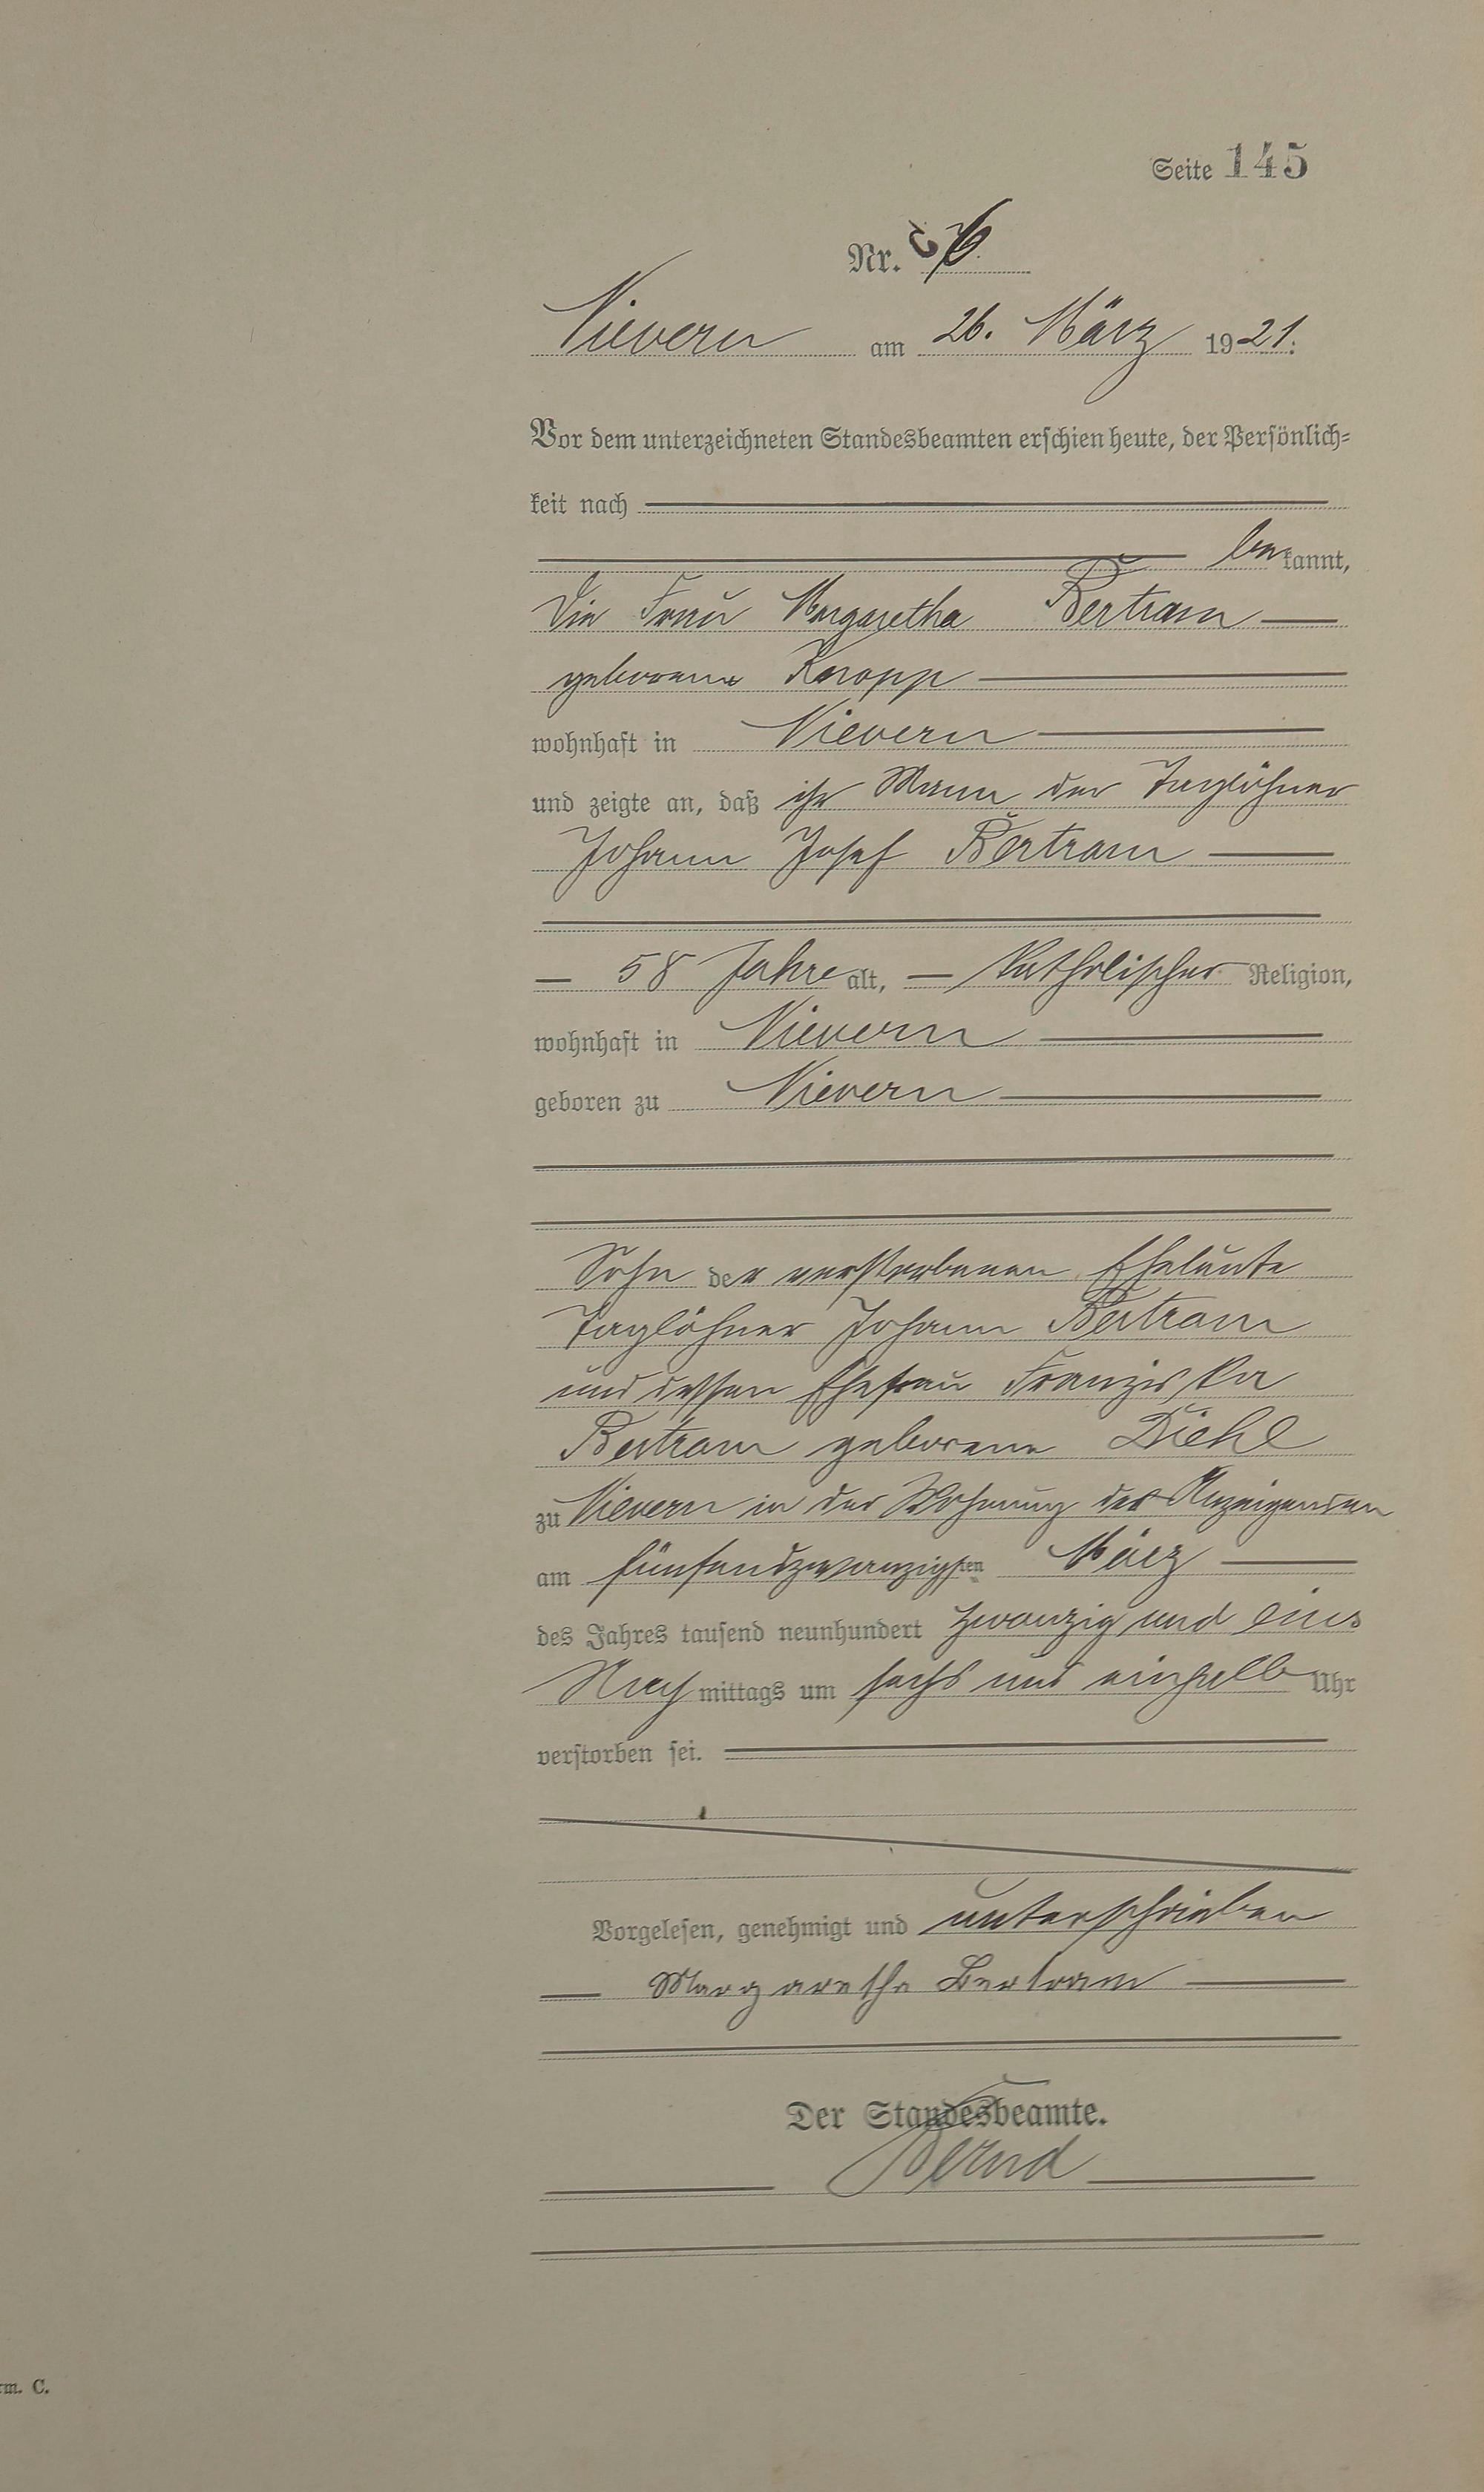 Seite 145
Nr. 6
Nievern am 26. März 1921.
Vor dem unterzeichneten Standesbeamten erschien heute, der Persönlich=
keit nach
be kannt,
die Frau Margaretha Bertram
geborene Knopp
wohnhaft in Nievern
und zeigte an, daß ihr Mann der Taglöhner
Johann Josef Bertram
58 Jahre alt, katholischer Religion,
wohnhaft in Nievern
geboren zu Nievern
Sohn der verstorbenen Eheleute
Taglöhner Johann Bertram
und dessen Ehefrau Franziska
Bertram geborene Diehl
zu Nievern in der Wohnung der Anzeigenden
am fünfundzwanzigsten März
des Jahres tausend neunhundert zwanzig und eins
Nach mittags um sechs und einhalb Uhr
verstorben sei.
Vorgelesen, genehmigt und unterschrieben
Margarethe Bertram
Der Standesbeamte.
Bernd
rm. C.